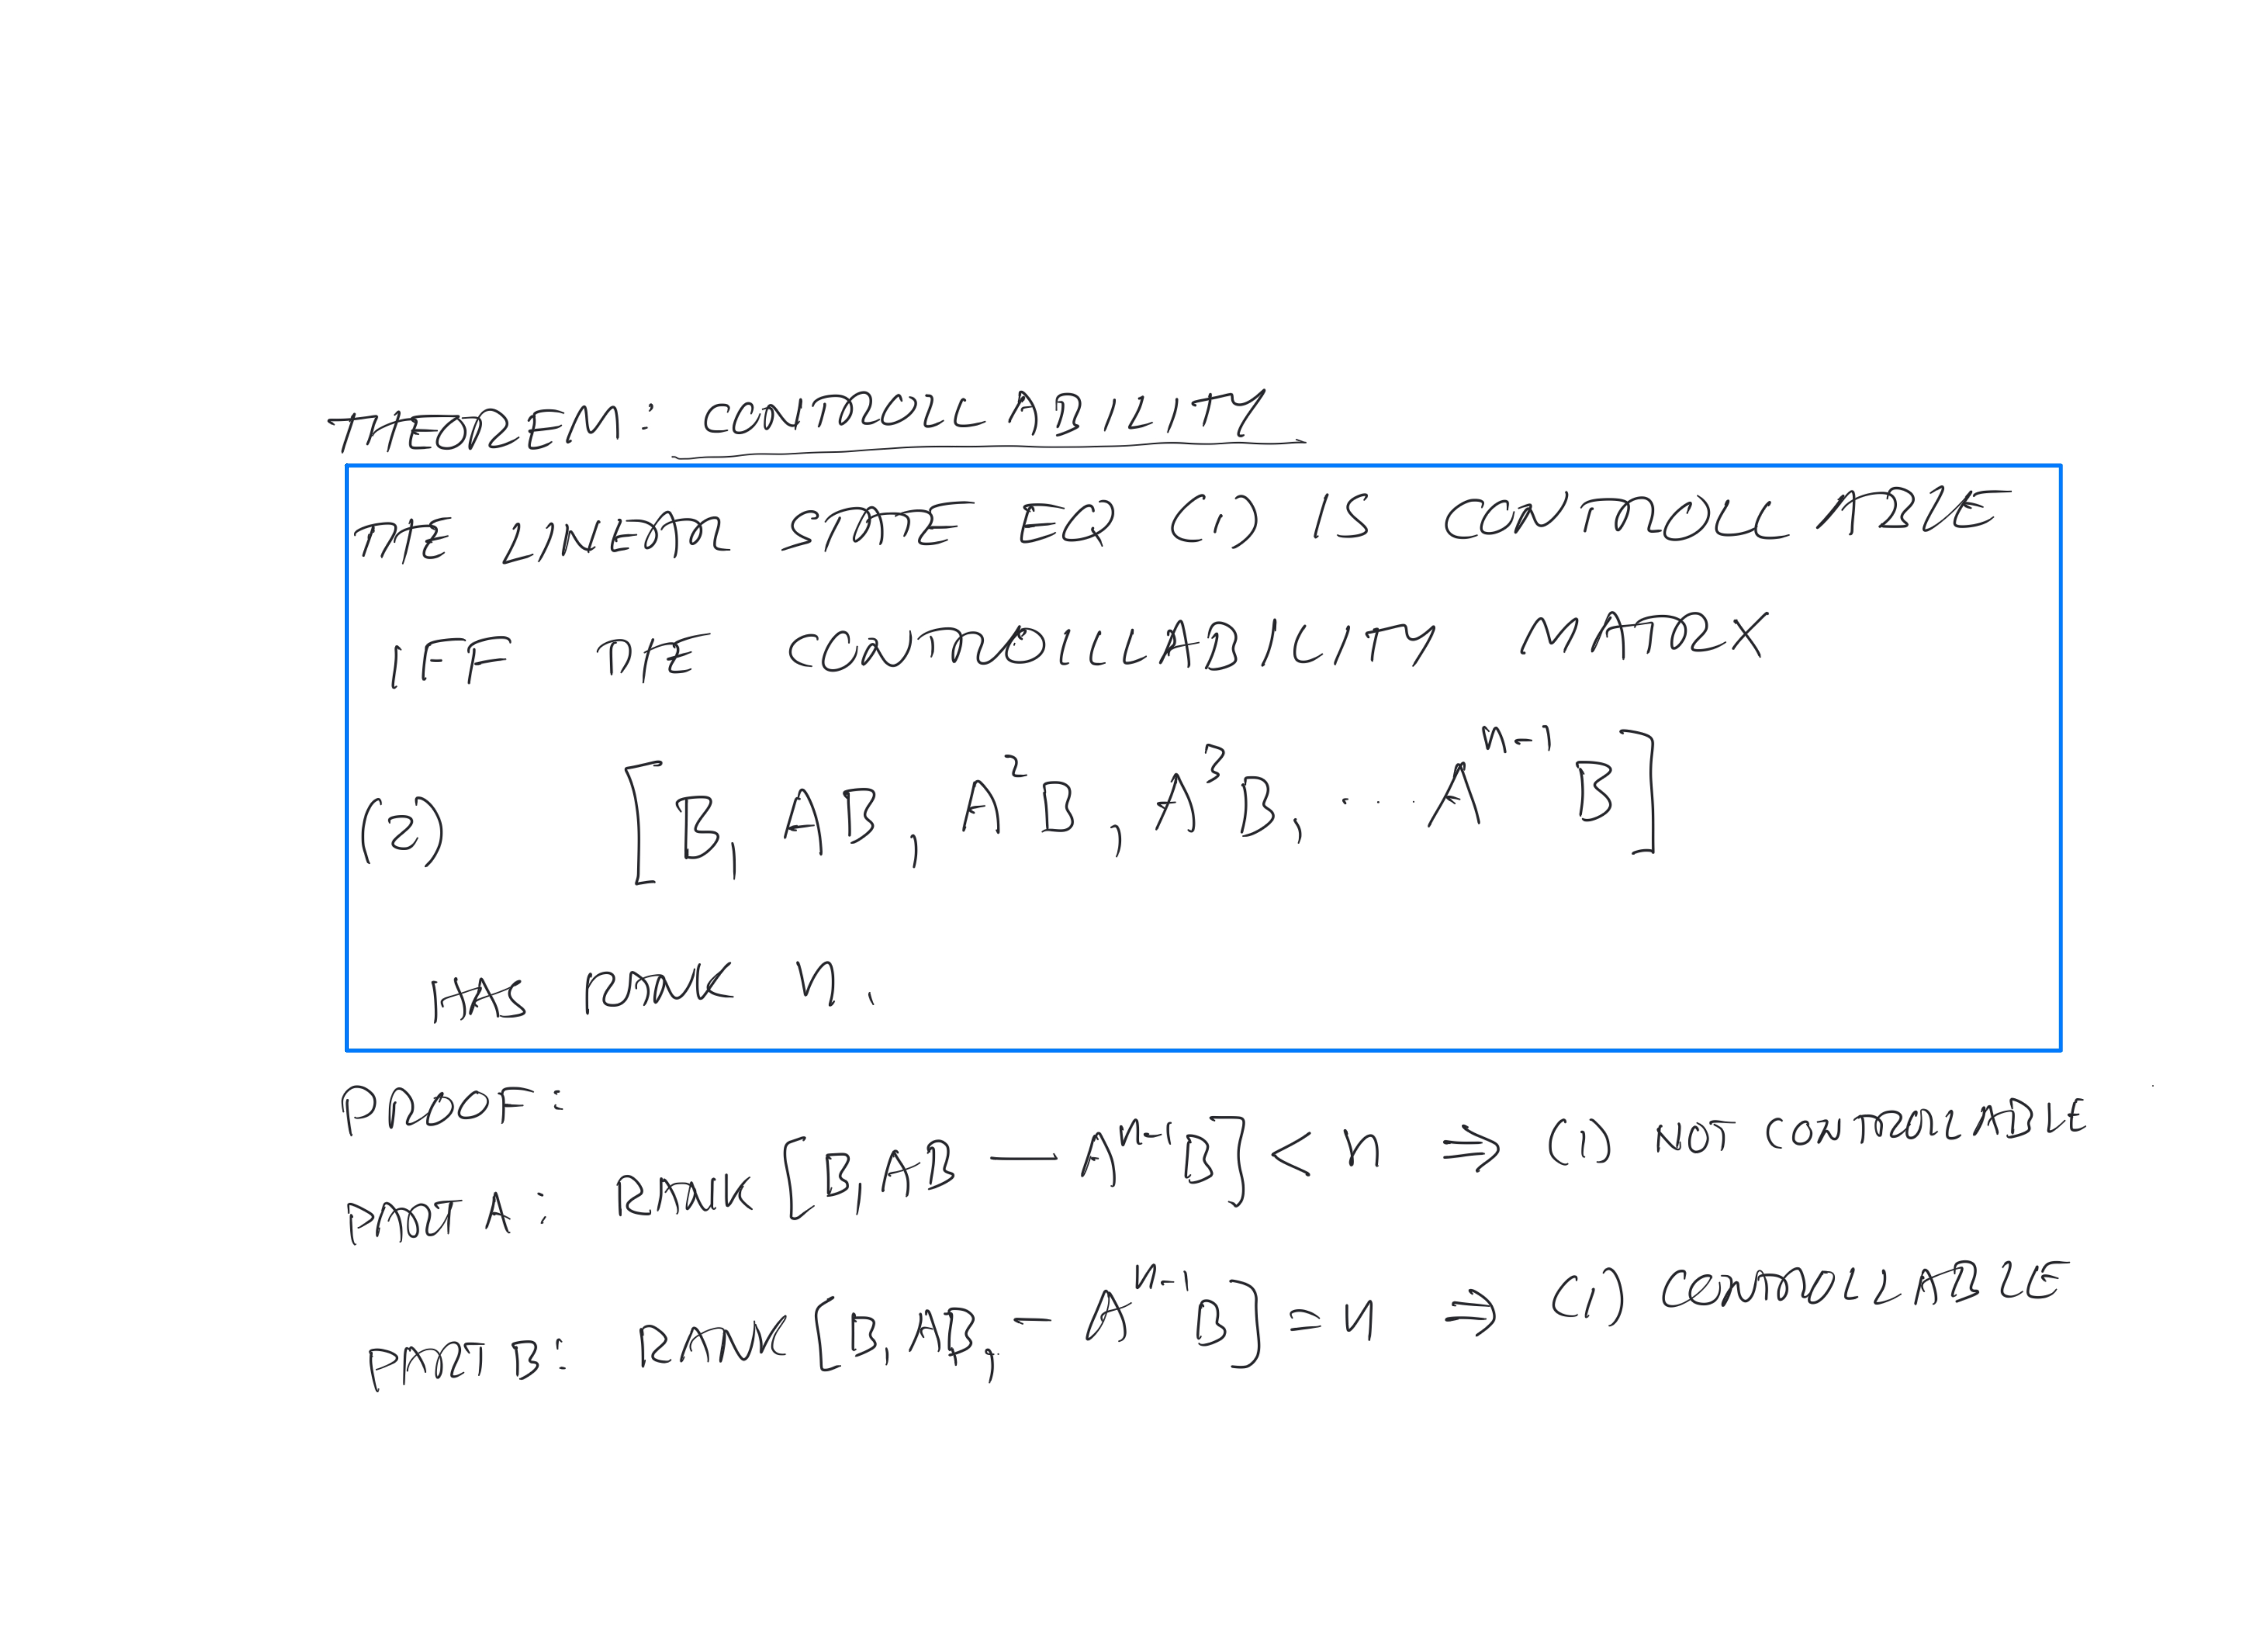 THEOREM: CONTROLLABILITY
THE LINEAR STATE EQ (1) IS CONTROLLABLE
IFF THE CONTROLLLABILITY MATRX
(2) [B, AB, A²B, A³B, ... Aⁿ⁻¹B]
HAS RANK n.
PROOF:
PART A: RANK [B, AB — Aⁿ⁻¹B] < n ⇒ (1) NOT CONTROLLABLE
PART B: RANK [B, AB, – Aⁿ⁻¹B] = n ⇒ (1) CONTROLLABLE